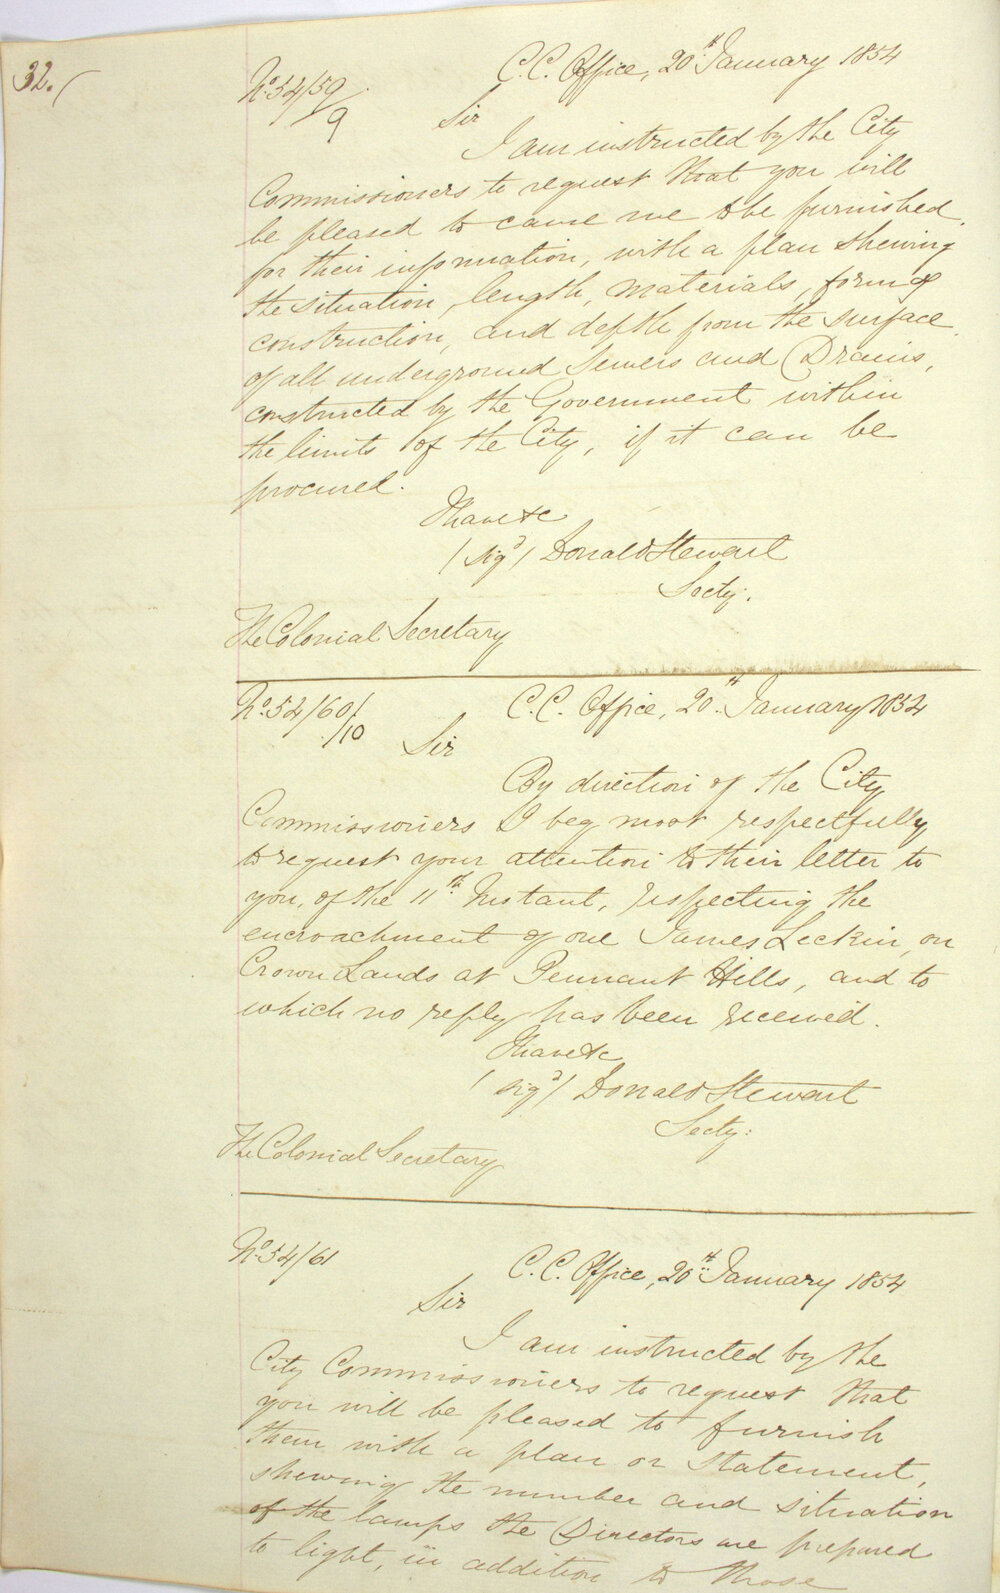 32.
No. 54/59/9
C.C. Office, 20th January 1854
Sir
I am instructed by the City
Commissioners to request that you will
be pleased to cause me to be furnished,
for their information, with a plan shewing
the situation, length, materials, form of
construction, and depth from the surface
of all underground Sewers and Drains,
constructed by the Government within
the limits of the City, if it can be
procured.
I have &c
(sigd) Donald Stewart
Secty.
The Colonial Secretary
No. 54/60/10
C.C. Office, 20th January 1854
Sir
By direction of the City
Commissioners I beg most respectfully
to request your attention to their letter to
you, of the 11th Instant, respecting the
encroachment of one James Leckin, on
Crown Lands at Pennant Hills, and to
which no reply has been received.
I have &c
(sigd) Donald Stewart
Secty:
The Colonial Secretary
No. 54/61
C.C. Office, 20th January 1854
Sir
I am instructed by the
City Commissioners to request that
you will be pleased to furnish
them with a plan or Statement,
shewing the number and situation
of the lamps the Directors are prepared
to light, in addition to those